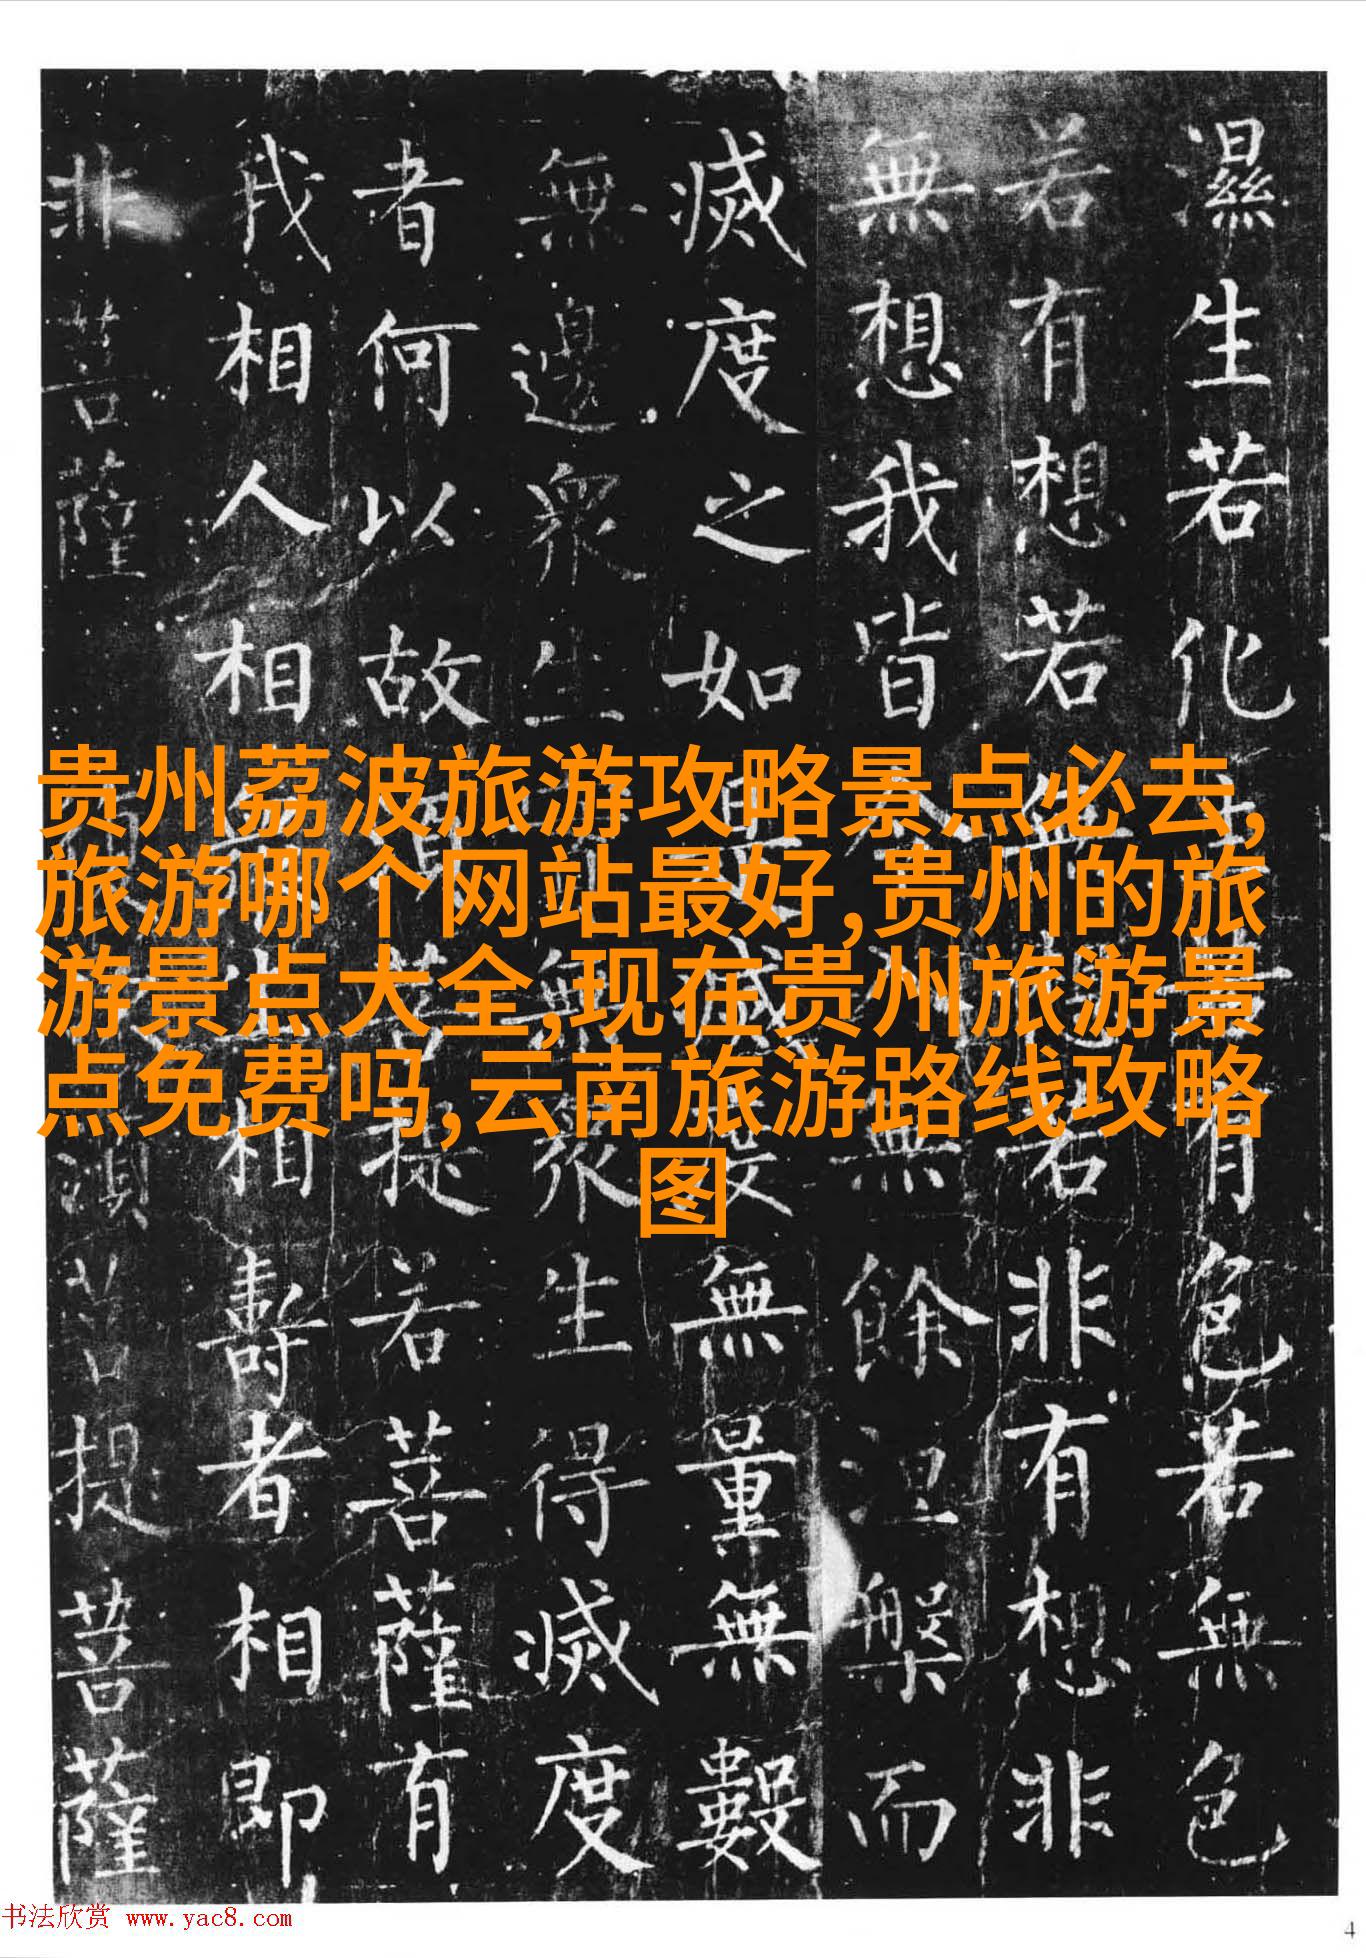 濕生若化有色若無色
若有想若若非有想非
無想我皆無餘涅槃而
滅度之如無量無數
無邊眾生無眾生得滅度
者何以故菩提若菩薩有
我相人相相壽者相即
非菩薩提菩薩
贵州荔波旅游攻略景点必去,
旅游哪个网站最好,贵州的旅
游景点大全,现在贵州旅游景
点免费吗,云南旅游路线攻略
图
书法欣赏 www.yac8.com
4